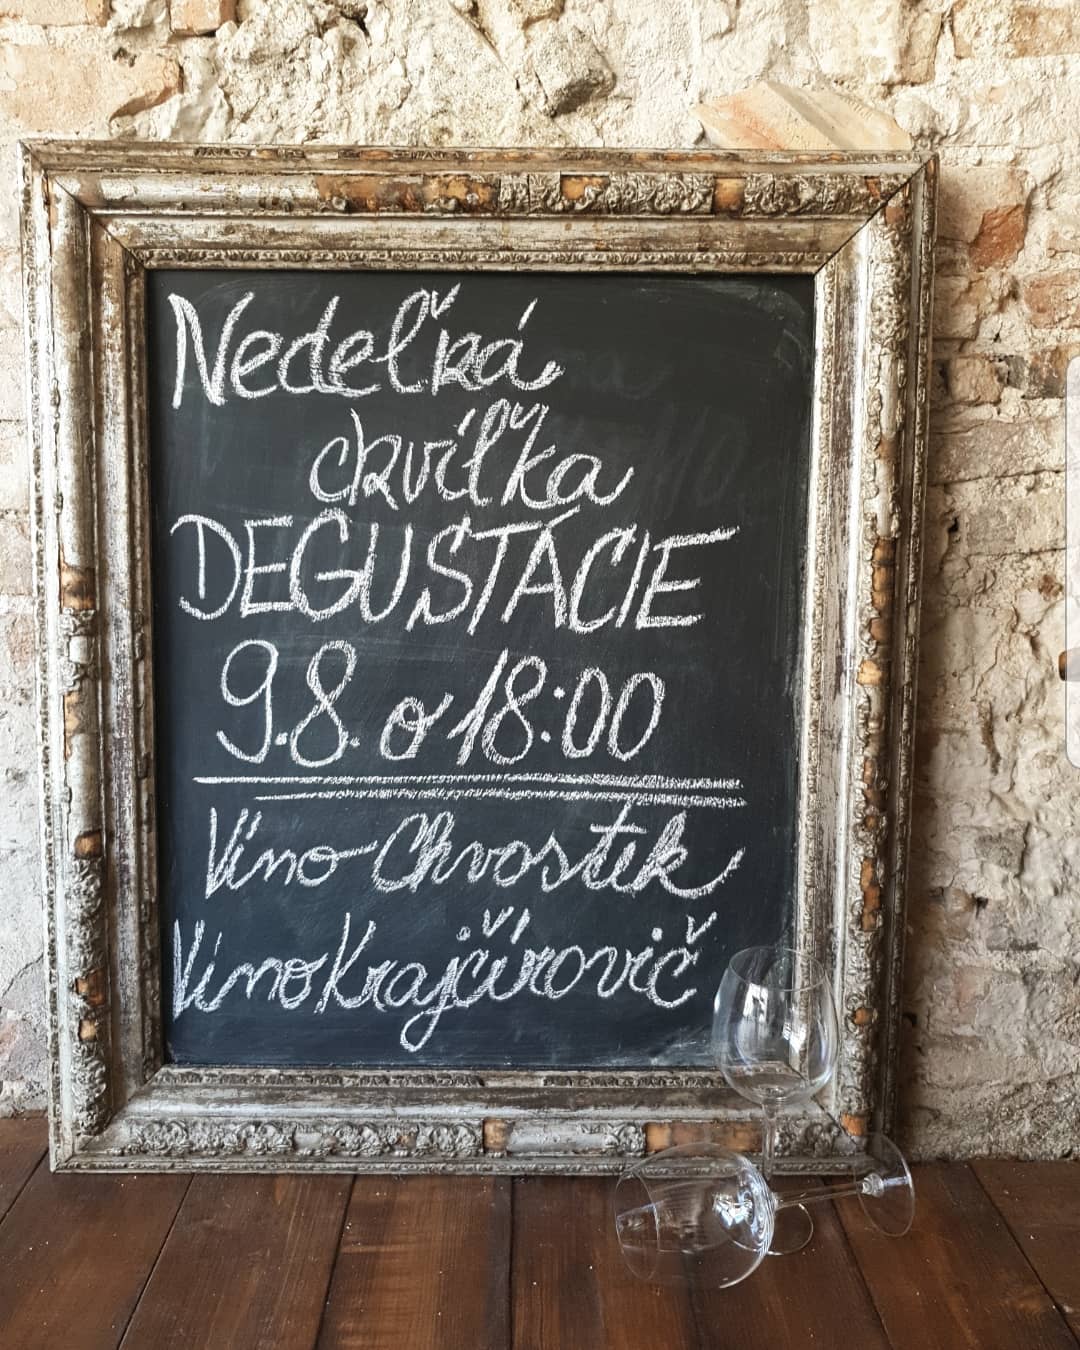 Nedeľná
chvíľka
DEGUSTÁCIE
9.8. o 18:00
Víno Chvostek
Víno Krajčírovič